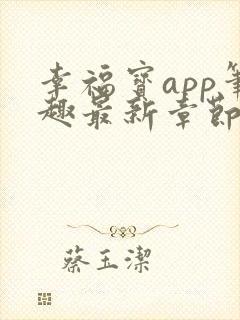 幸福寶app筆
趣最新章節
蔡玉潔